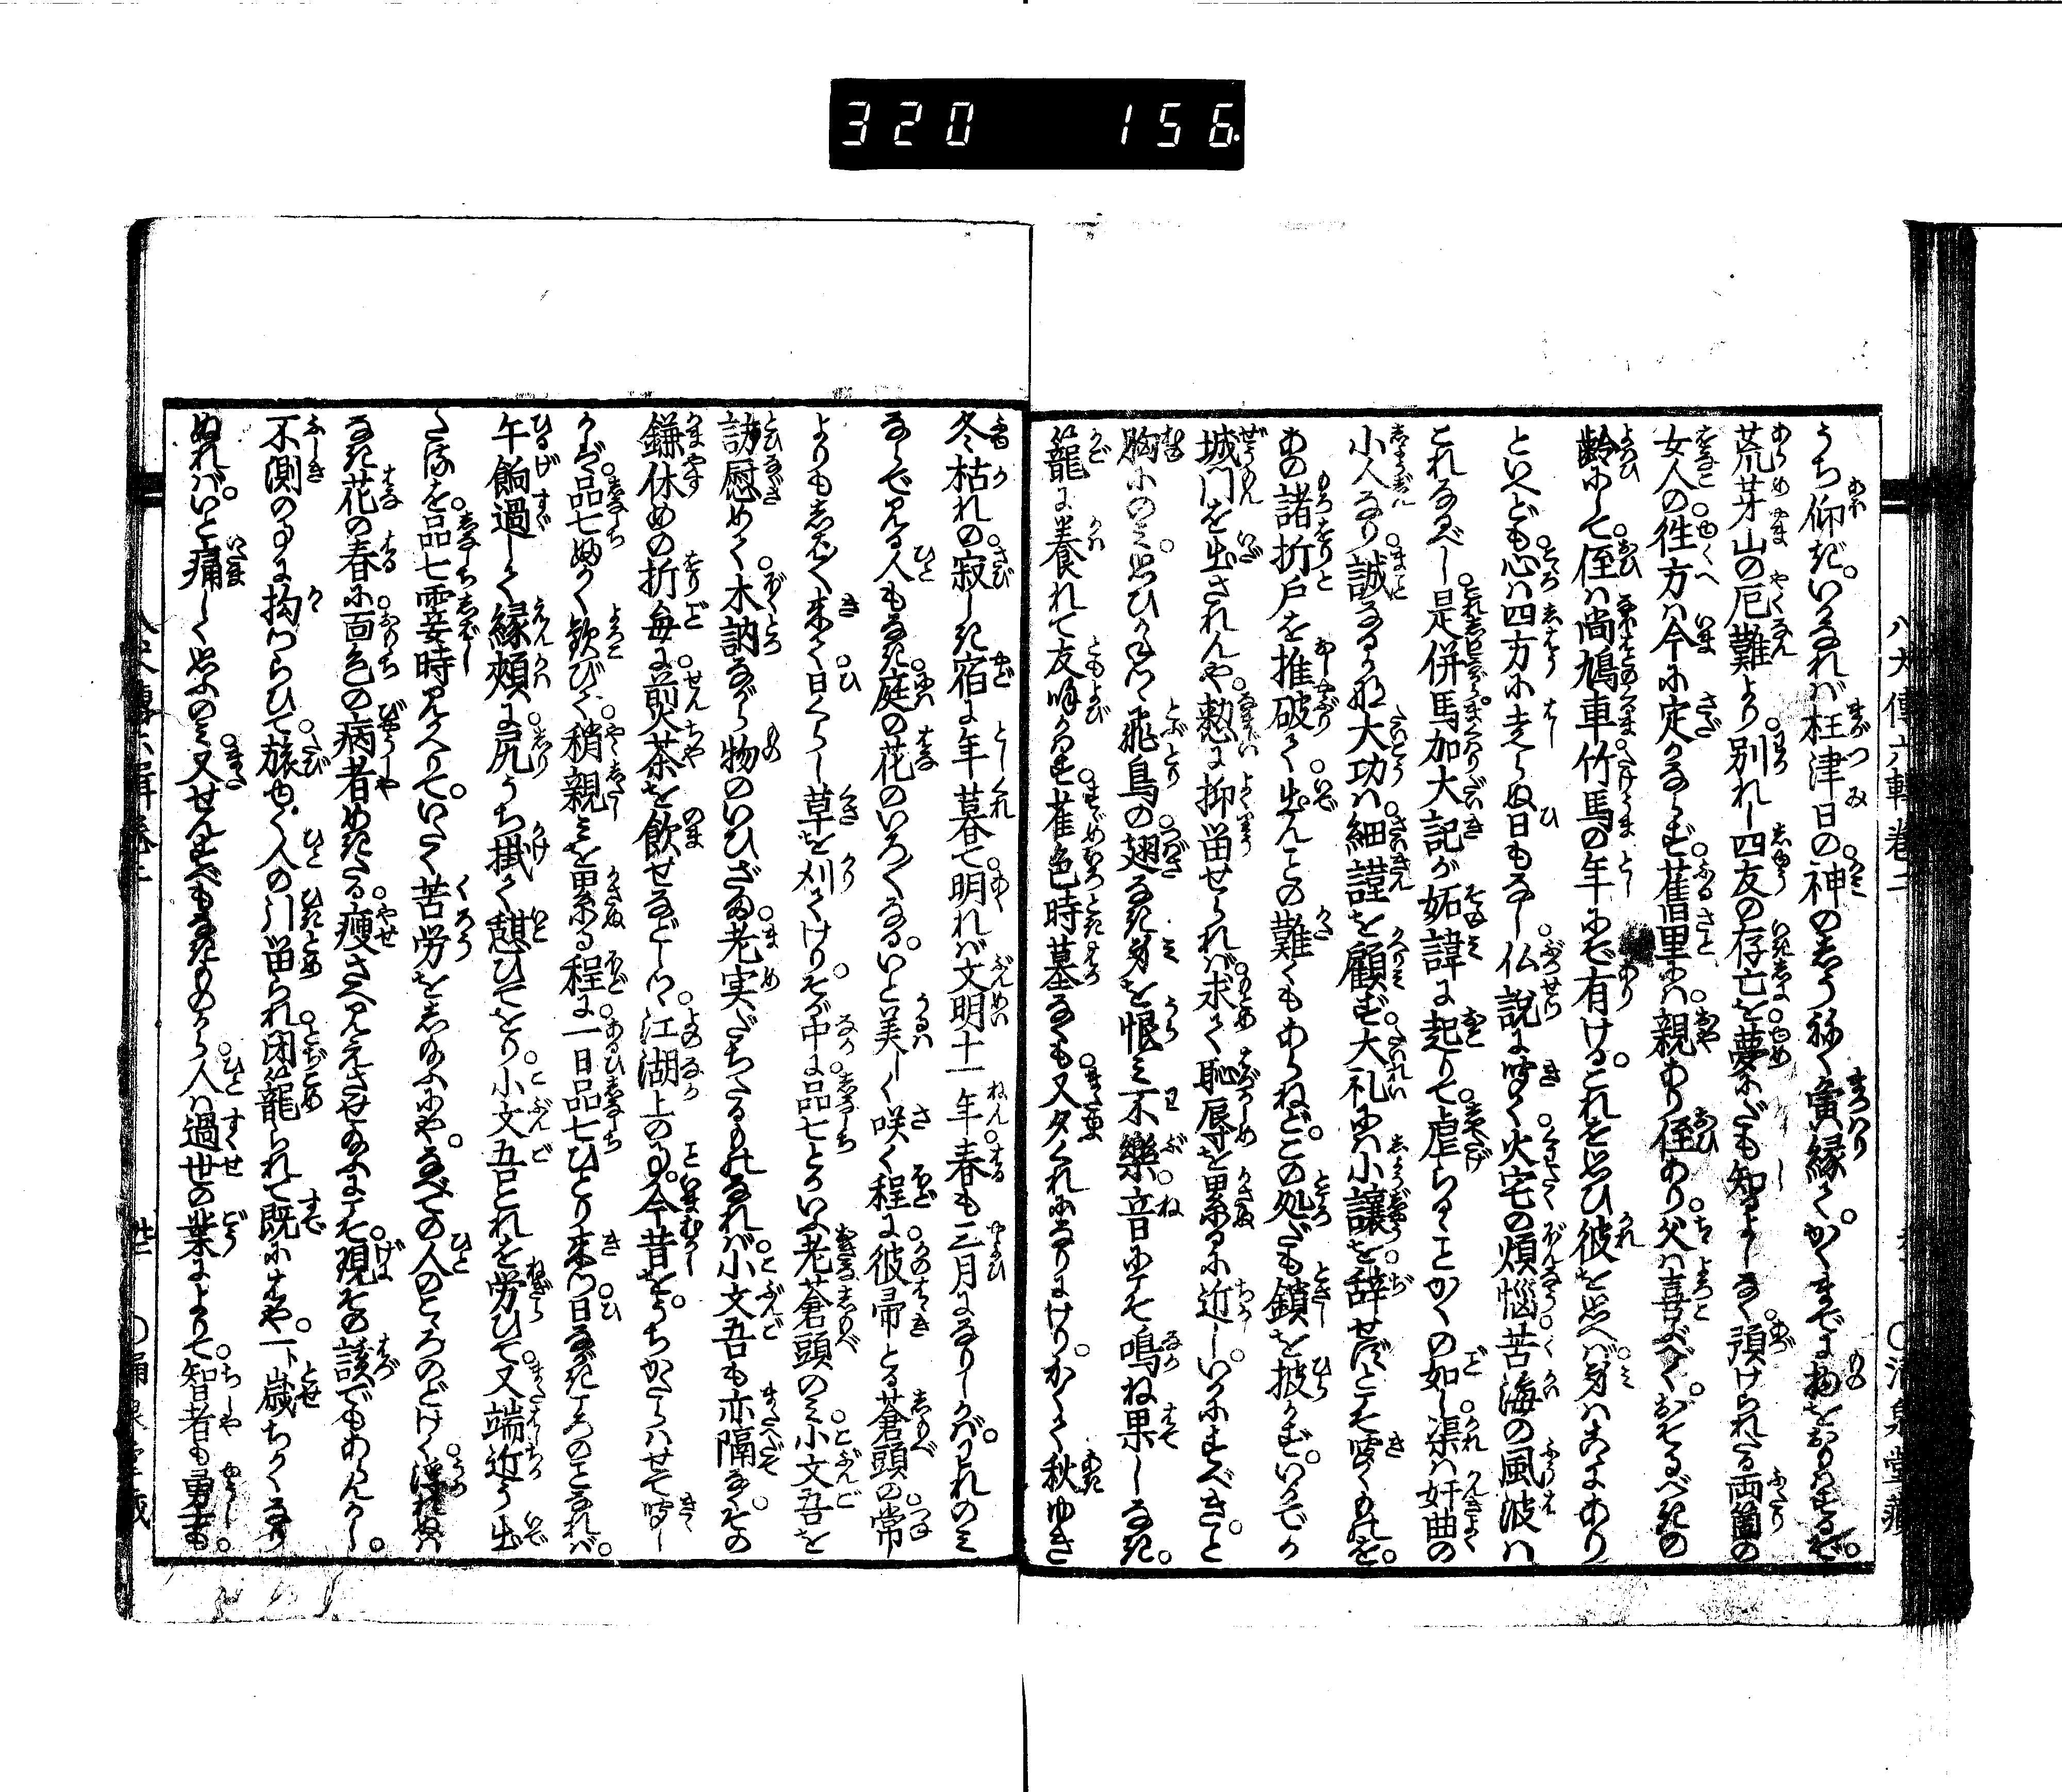 320 156
八犬傳六輯卷二
うち仰ぎいかなれば枉津日の神のしう祢く夤縁てかくまでに物をおもはするぞ
荒芽山の厄難より別れし四友の存亡を夢にだも知るよしなく預けられたる両箇の
女人の徃方は今に定かならず舊里には親あり侄あり父は喜ぶべくおそるべきの
齢にして侄は尚鳩車竹馬の年にぞ有けるこれを思ひ彼を思へば身はこゝにあり
といへども心は四方に走らぬ日もなし仏説に聞く火宅の煩悩苦海の風波は
これなるべし是併馬加大記が妬諱に起りて虐らるゝことかくの如し渠は奸曲の
小人なり誠なるかな大功は細謹を顧ず大礼には小讓を辞せずとこそ聞くものを
あの諸折戸を推破て出んことの難くもあらねどこの処だも鎖を披かずいかでか
城門を出されんや憖に抑留せられば求て恥辱を累るに近しいかにすべきと
胸にのみ思ひかねつゝ飛鳥の翅なき身を恨み不樂音にこそ鳴ね果しなき
籠に養れて友呼かはす雀色時墓なくも又夕くれになりにけりかくて秋ゆき
冬枯れの寂しき宿に年暮て明れば文明十一年春も三月になりしかばわれのみ
ならで見る人もなき庭の花のいろ〳〵なるいと美しく咲く程に彼帚とる蒼頭の常
よりもしば〳〵来て日くらし草を刈てけりそが中に品七とかいふ老蒼頭のみ小文吾を
訪慰めて木訥ながら物のいひざま老実だちたるものなれば小文吾も亦隔なくその
鎌休めの折毎に煎茶を飲せなどしつゝ江湖上の事今昔をうちかたらはせて聞し
かば品七ぬかく歓びて稍親みを累る程に一日品七ひとり来つ日ながきころのことなれば
午餉過して縁頬に尻うち掛て憩ひてをり小文吾これを労ひて又端近う出
たるを品七霎時見かへりていたく苦労をし給ふにやなべての人のこゝろのどけく浮れぬは
なき花の春に面色の病者めきたる痩さへ見えさせ給ふにこそ現その該でもあらんかし
不測の事に拘つらひて旅ゆく人の引留られ閉籠られて既にはや一ト歳ちかくなり
ぬればいと痛しく思ふのみ又せんすべもなきものから人は過世の業によりて智者も勇士も